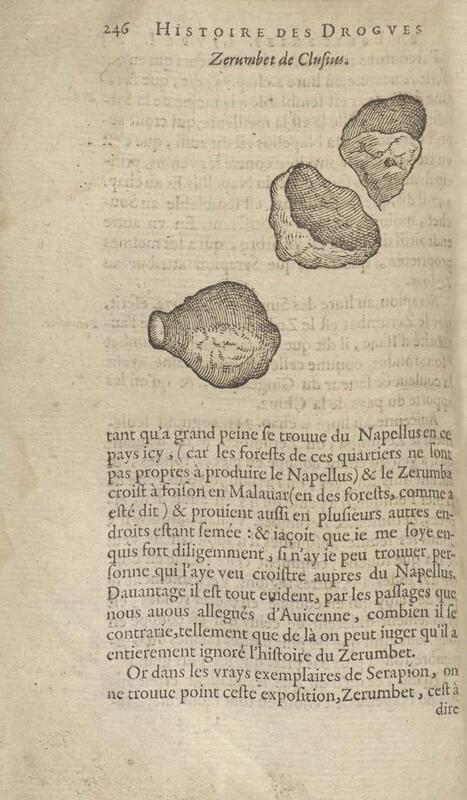 246 HISTOIRE DES DROGVES
Zerumbet de Clusius.
tant qu'a grand peine se trouue du Napellus en ce
pays icy, (car les forests de ces quartiers ne sont
pas propres à produire le Napellus) & le Zerumba
croist à foison en Malauar (en des forests, comme a
esté dit) & prouient aussi en plusieurs autres en-
droits estant semée : & iaçoit que ie me soye en-
quis fort diligemment, si n'ay ie peu trouuer per-
sonne qui l'aye veu croistre aupres du Napellus.
Dauantage il est tout euident, par les passages que
nous auous allegués d'Auicenne, combien il se
contrarie, tellement que de là on peut iuger qu'il a
entierement ignoré l'histoire du Zerumbet.
Or dans les vrays exemplaires de Serapion, on
ne trouue point ceste exposition, Zerumbet, c'est à
dire